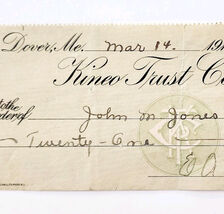 Dover, Me. Mar 14. 19
Kineo Trust C
to the
order of John M Jones
Twenty-One